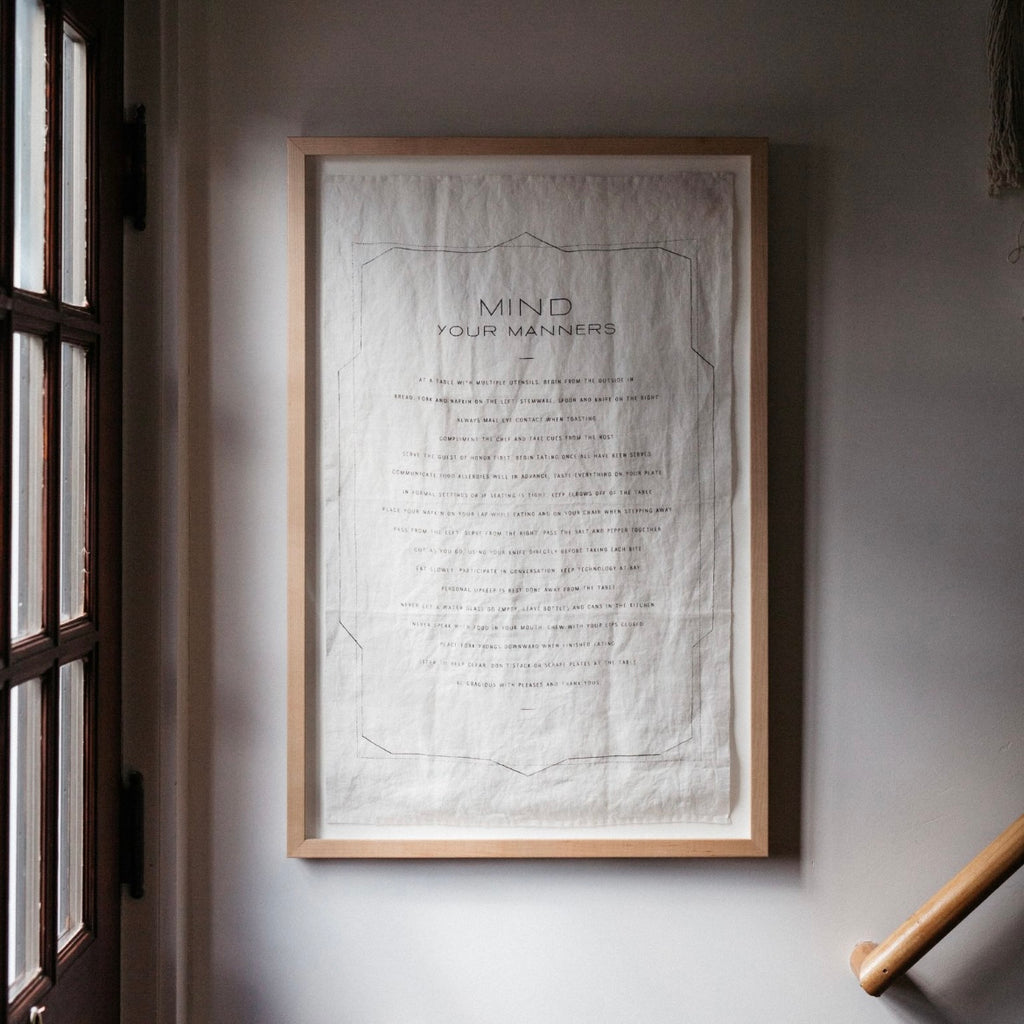 MIND
YOUR MANNERS
AT A TABLE WITH MULTIPLE UTENSILS, BEGIN FROM THE OUTSIDE IN
BREAD, FORK AND NAPKIN ON THE LEFT; STEMWARE, SPOON AND KNIFE ON THE RIGHT
ALWAYS MAKE EYE CONTACT WHEN TOASTING
COMPLIMENT THE CHEF AND TAKE CUES FROM THE HOST
SERVE THE GUEST OF HONOR FIRST, BEGIN EATING ONCE ALL HAVE BEEN SERVED
COMMUNICATE FOOD ALLERGIES WELL IN ADVANCE, TASTE EVERYTHING ON YOUR PLATE
IN FORMAL SETTINGS OR IF SEATING IS TIGHT, KEEP ELBOWS OFF OF THE TABLE
PLACE YOUR NAPKIN ON YOUR LAP WHILE EATING AND ON YOUR CHAIR WHEN STEPPING AWAY
PASS FROM THE LEFT, SERVE FROM THE RIGHT, PASS THE SALT AND PEPPER TOGETHER
CUT AS YOU GO, USING YOUR KNIFE DIRECTLY BEFORE TAKING EACH BITE
EAT SLOWLY, PARTICIPATE IN CONVERSATION, KEEP TECHNOLOGY AT BAY
PERSONAL UPKEEP IS BEST DONE AWAY FROM THE TABLE
NEVER LET A WATER GLASS GO EMPTY, LEAVE BOTTLES AND CANS IN THE KITCHEN
NEVER SPEAK WITH FOOD IN YOUR MOUTH, CHEW WITH YOUR LIPS CLOSED
PLACE FORK PRONGS DOWNWARD WHEN FINISHED EATING
OFFER TO HELP CLEAR, DON'T STACK OR SCRAPE PLATES AT THE TABLE
BE GRACIOUS WITH PLEASES AND THANK YOUS